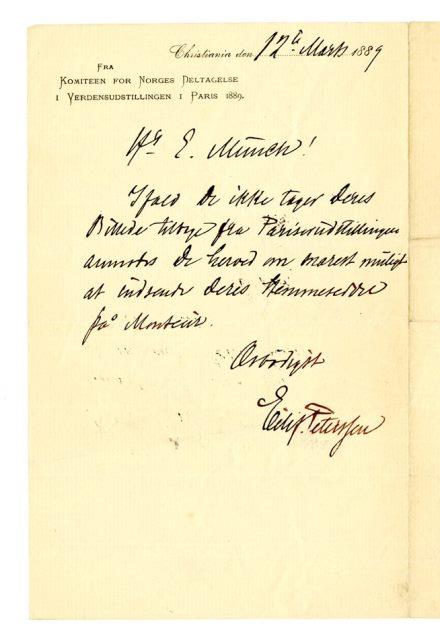 Christiania den 12te Marts 1889
Fra
Komiteen for Norges Deltagelse
i Verdensudstillingen i Paris 1889.
Hr E. Munch!
Ifald De ikke tager Deres
Billede tilbage fra Pariserudstillingen
anmodes De herved om snarest muligt
at indsende Deres Stemmeseddel
på Monteur.
Ærbødigst
Eilif Peterssen